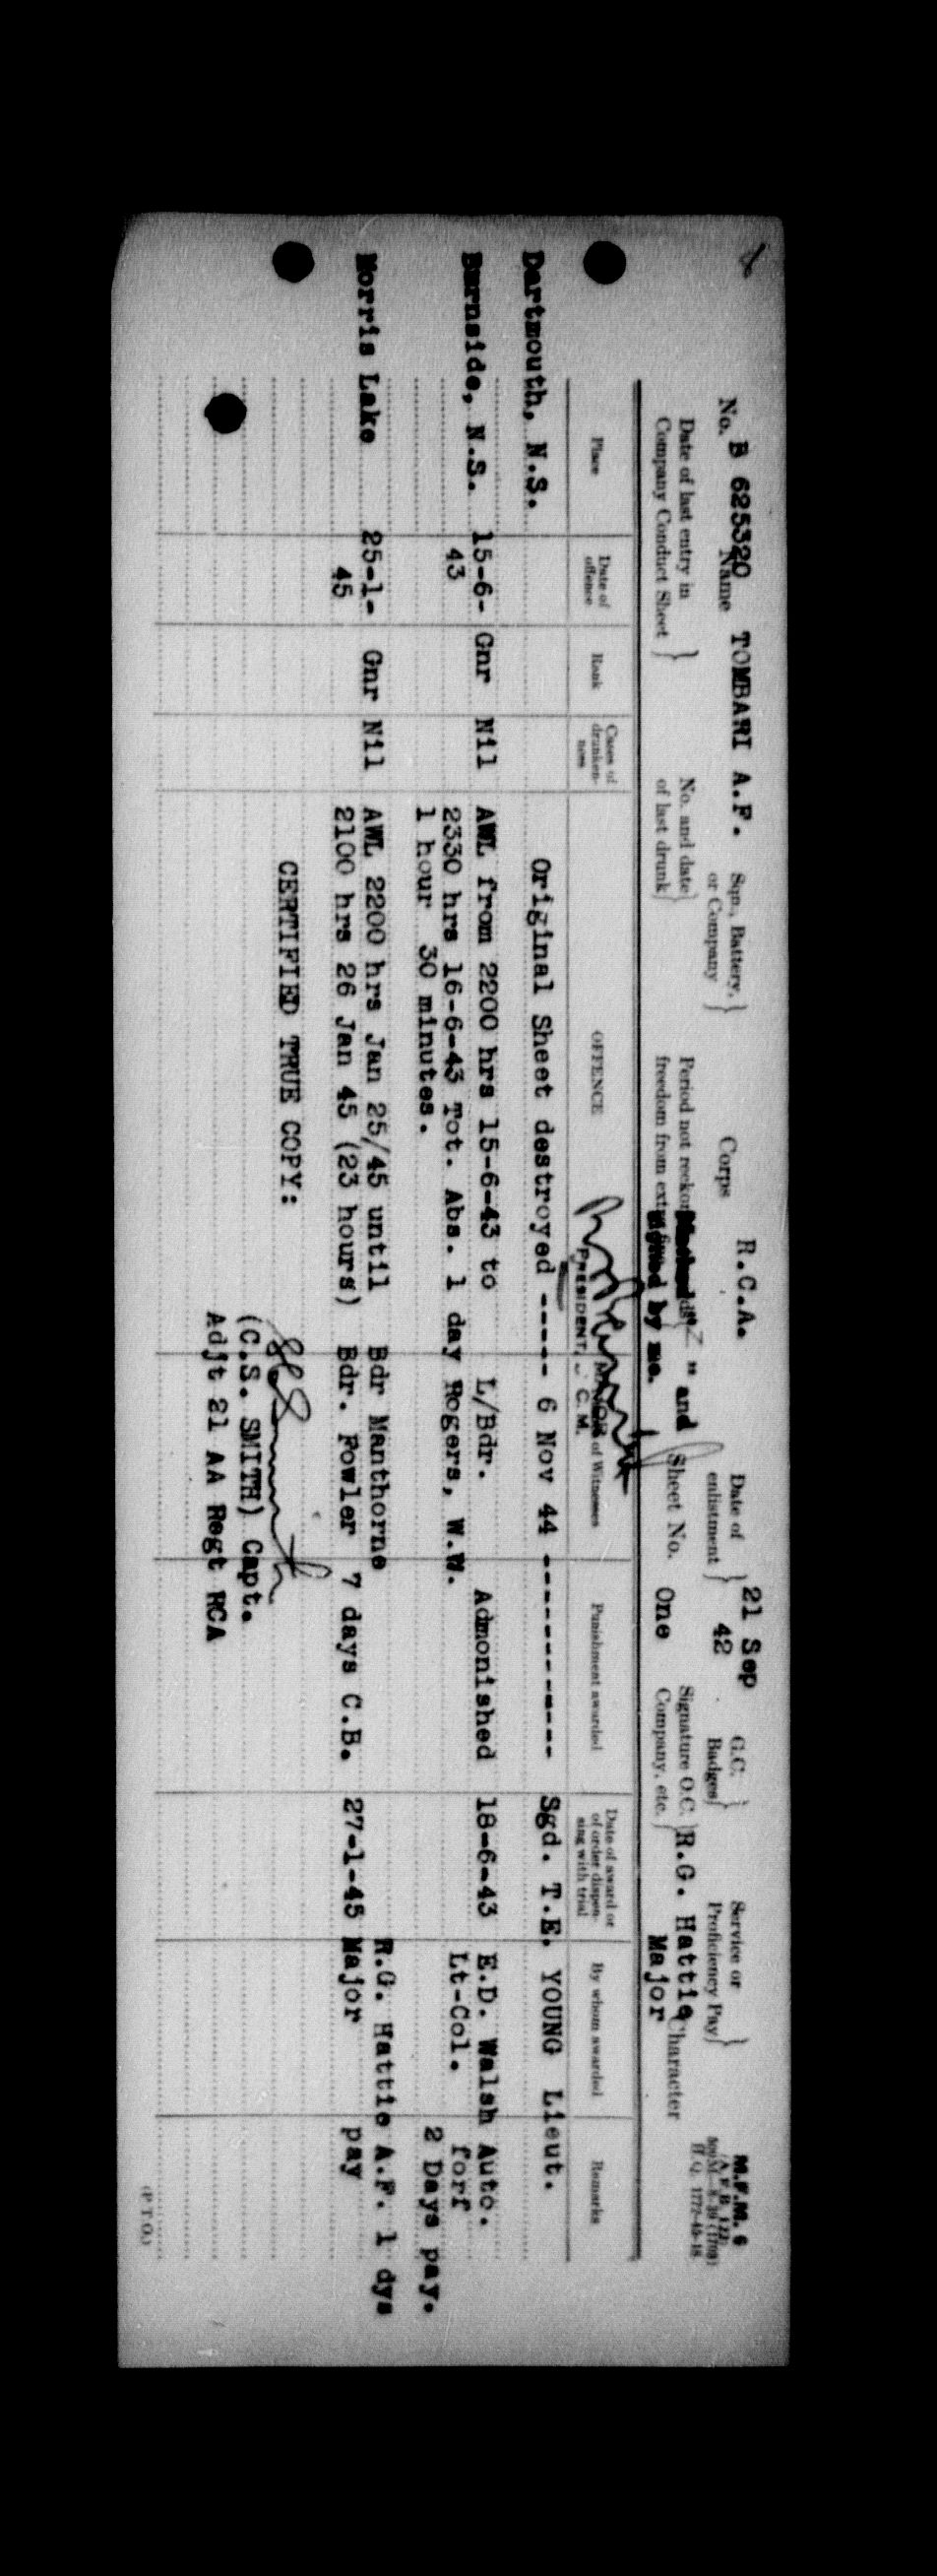 M.F.M. 6
No. B 625320 Name TOMBARI A.F. Sqn., Battery, or Company Corps R.C.A. Date of enlistment 21 Sep 42 G.C. Badges Service or Proficiency Pay
Date of last entry in Company Conduct Sheet No. and date of last drunk Period not reckon freedom from " and signed by me. Sheet No. One Signature O.C. Company, etc. R.G. Hattie Major Character
MAJOR
PRESIDENT, C.M.
Place Date of offence Rank Cases of drunkenness OFFENCE of Witnesses Punishment awarded Date of award or of order dispensing with trial By whom awarded Remarks
Dartmouth, N.S. Original Sheet destroyed ----- 6 Nov 44 ---------- Sgd. T.E. YOUNG Lieut.
Burnside, N.S. 15-6- Gnr Nil AWL from 2200 hrs 15-6-43 to L/Bdr. Admonished 18-6-43 E.D. Walsh Auto.
43 2330 hrs 16-6-43 Tot. Abs. 1 day Rogers, W.W. Lt-Col. forf
1 hour 30 minutes. 2 Days pay.
Morris Lake 25-1- Gnr Nil AWL 2200 hrs Jan 25/45 until Bdr Manthorne R.G. Hattie A.F. 1 dys
45 2100 hrs 26 Jan 45 (23 hours) Bdr. Fowler 7 days C.B. 27-1-45 Major pay
CERTIFIED TRUE COPY:
(C.S. SMITH) Capt.
Adjt 21 AA Regt RCA
(P.T.O.)